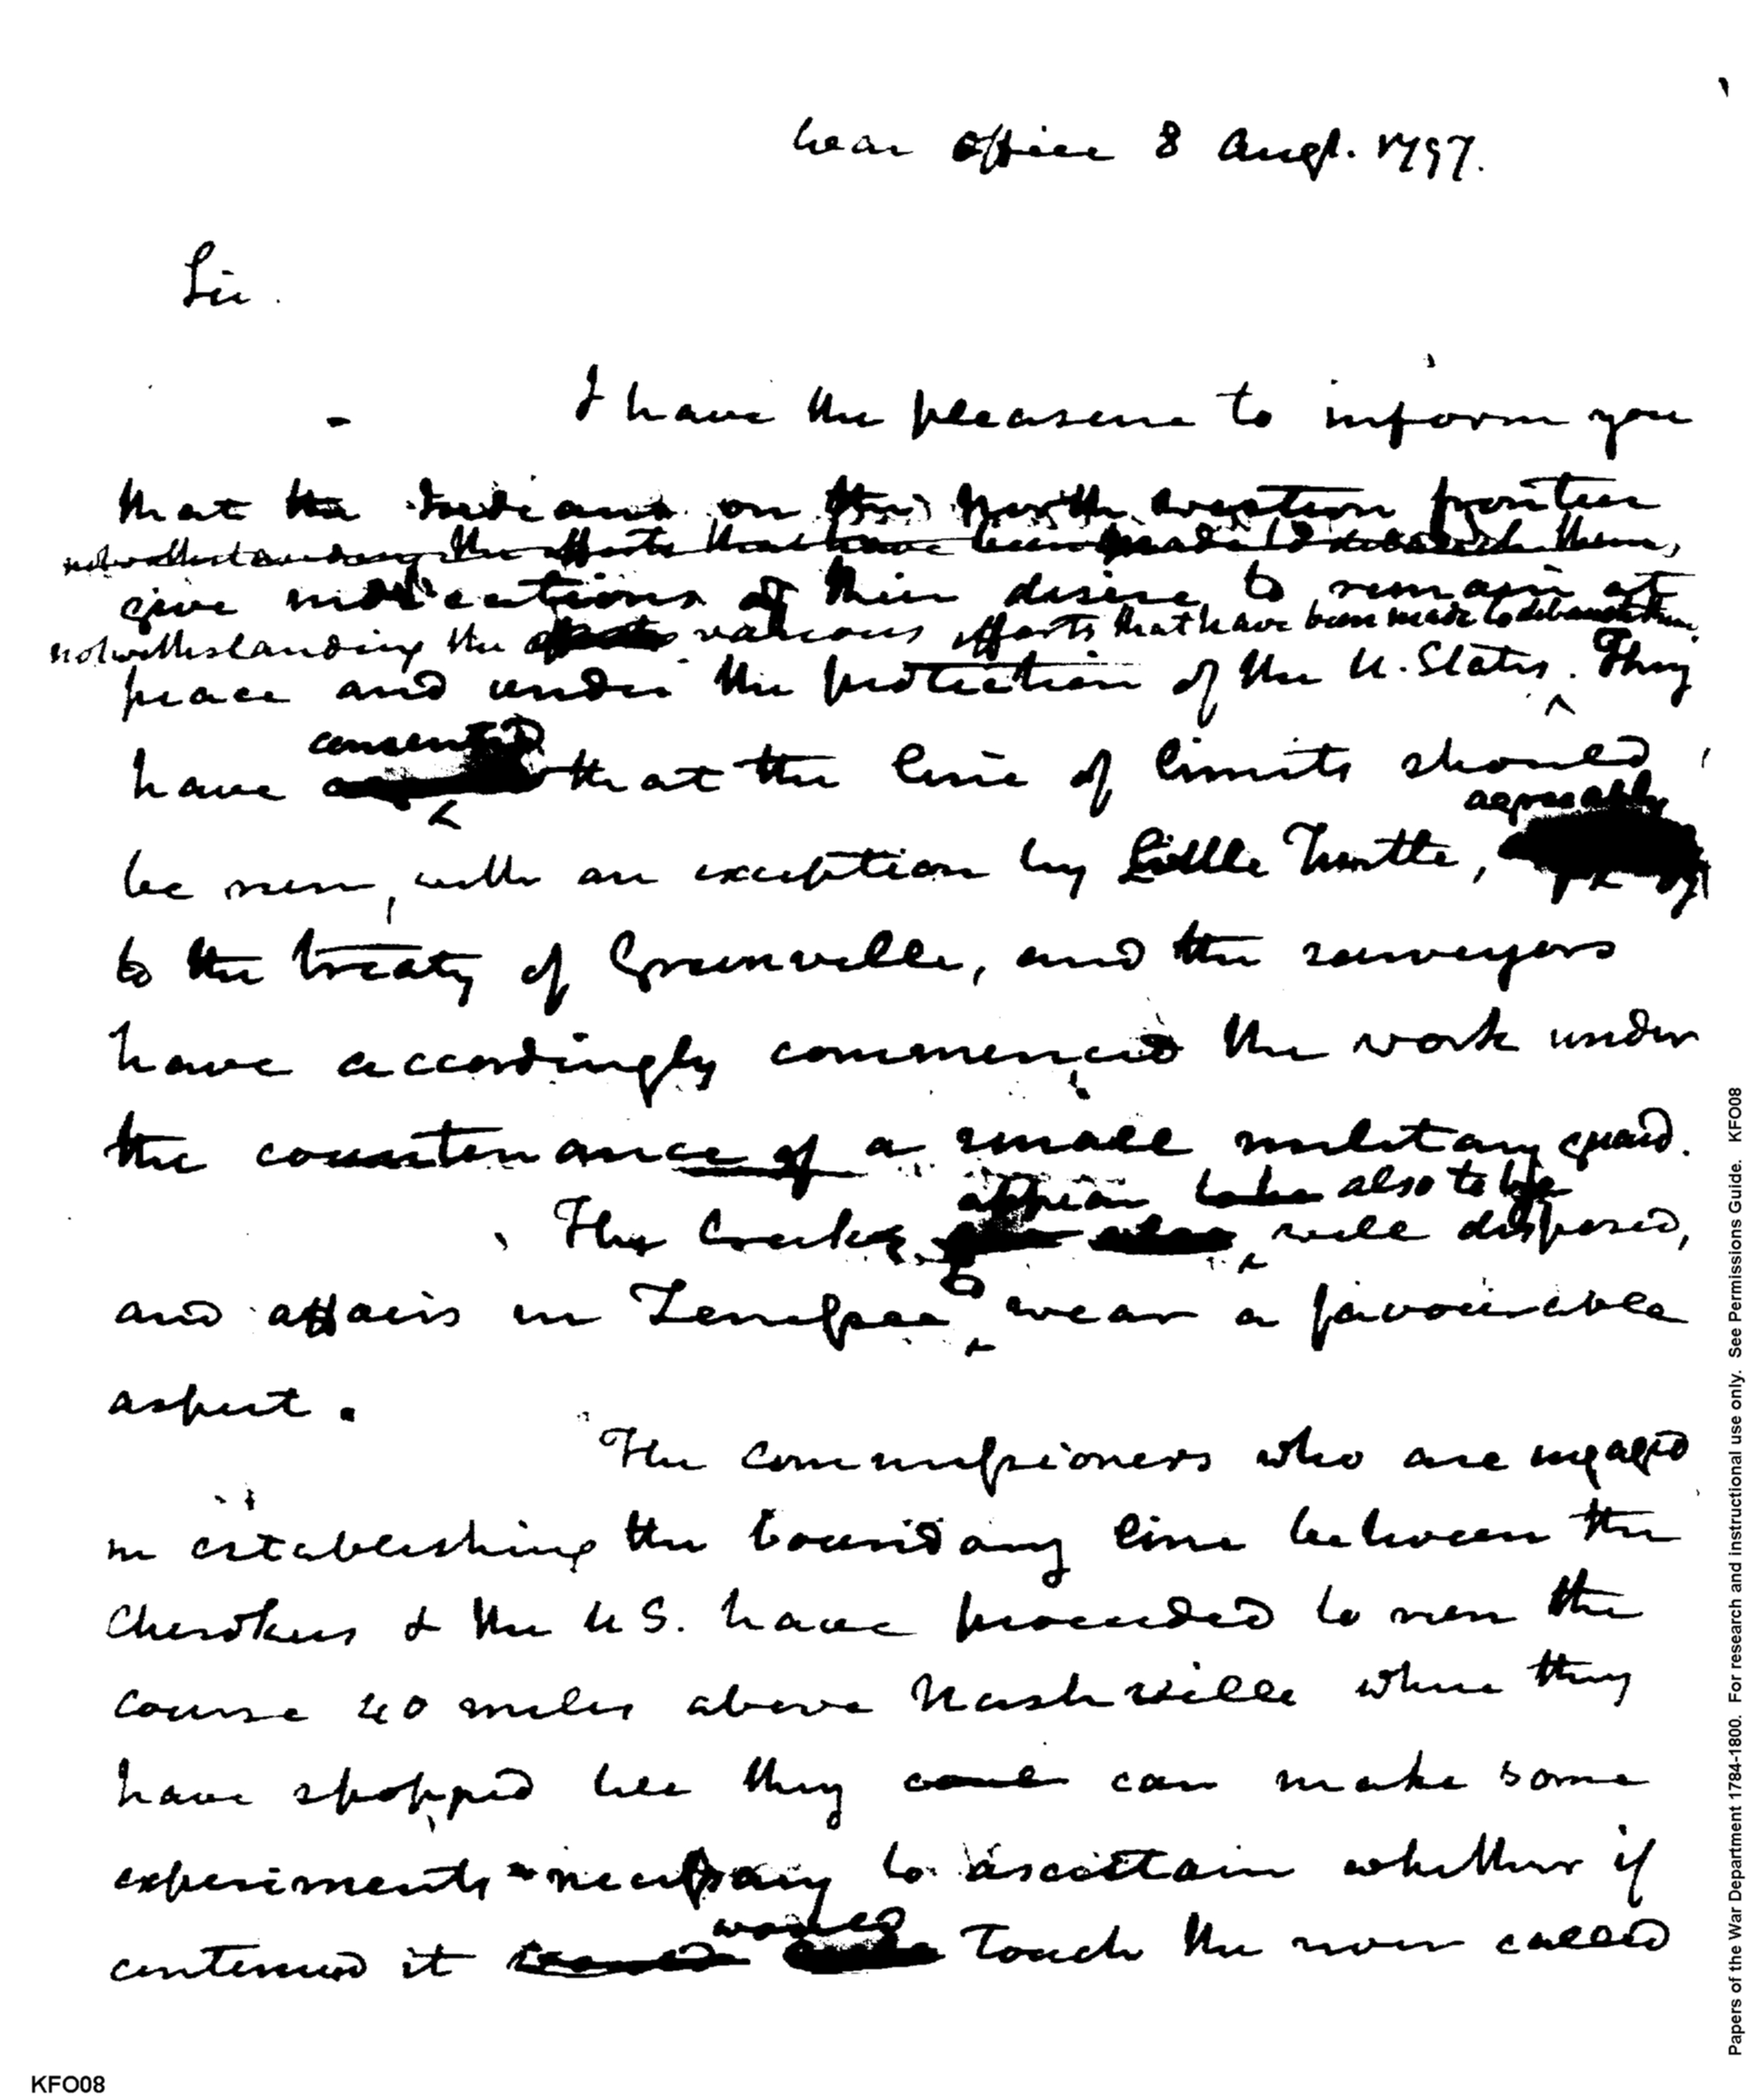 War office 8 Augt. 1797.
Sir.
I have the pleasure to inform you
that the Indians on the North western frontier
notwithstanding the efforts that have been made to debauch them,
give indications of their desire to remain at
notwithstanding the efforts various efforts that have been made to debauch them.
peace and under the protection of the U. States. They
consented
have that the line of limits should
agreeably
be run, with an exception by Little Turtle,
to the treaty of Greenville, and the surveyors
have accordingly commenced the work under
the countenance of a small military guard.
appear also to be
The Creeks well disposed,
and affairs in Tennessee wear a favourable
aspect.
The Commissioners who are engaged
in establishing the boundary line between the
Cherokees & the U S. have proceeded to run the
course 40 miles above Nashville where they
have stopped till they can make some
experiments necessary to ascertain whether if
would
continued it touch the river called
KFO08
Papers of the War Department 1784-1800. For research and instructional use only. See Permissions Guide. KFO08